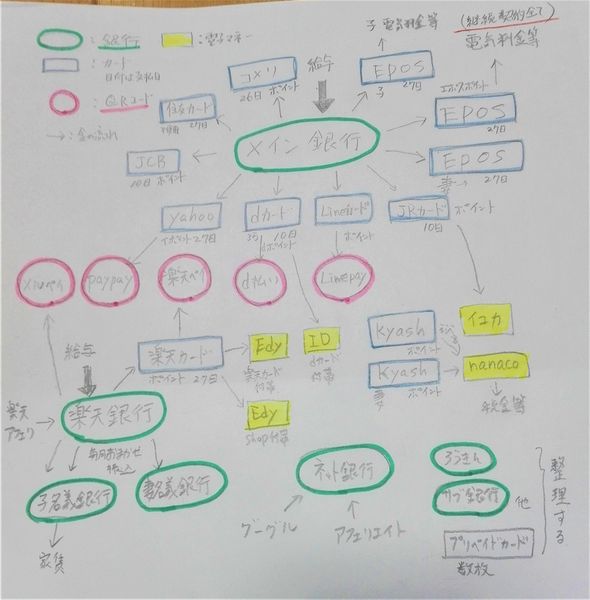 ：銀行
：電子マネー
：カード
日付は支払日
：QRコード
→：金の流れ
(継続契約全て)
電気料金等
子 電気料金等
給与
コメリ
26日 ポイント
EPOS
子 27日
エポスポイント
EPOS
27日
住友カード
27日
メイン銀行
EPOS
妻→ 27日
JCB
10日 ポイント
yahoo
Tポイント 27日
dカード
10日
dポイント
Lineカード
ポイント
JRカード
10日
ポイント
メルペイ
paypay
楽天ペイ
d払い
Linepay
給与
楽天カード
ポイント 27日
Edy
楽天カード
付帯
ID
dカード
付帯
Kyash
ポイント
イコカ
Kyash
妻 ポイント
nanaco
税金等
楽天
アフェリ
楽天銀行
Edy
shop付帯
毎月おまかせ
振込
子名義銀行
妻名義銀行
家賃
ネット銀行
グーグル
アフェリエイト
ろうきん
サブ銀行
他
プリペイドカード
数枚
整理する